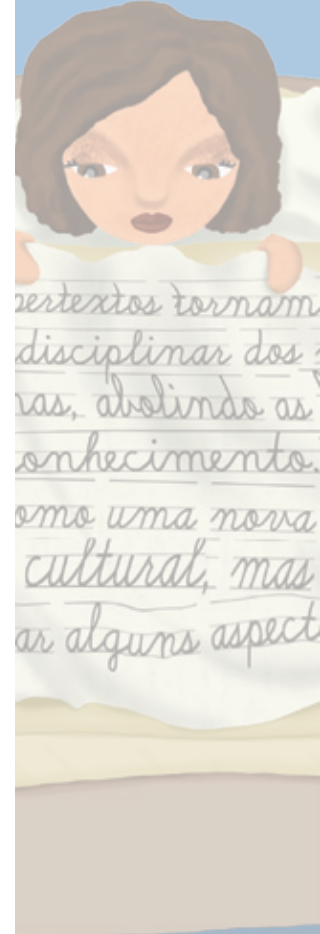 pertextos tornam
disciplinar dos
nas, abolindo as
onhecimento.
omo uma nova
cultural, mas
ar alguns aspect